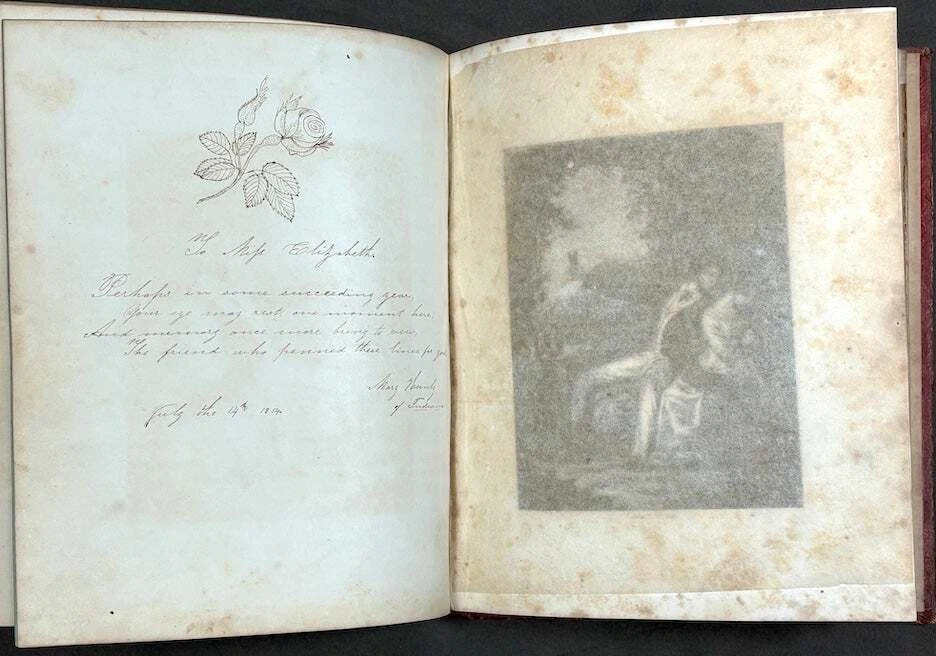 To Miss Elizabeth.
Perhaps in some succeeding year,
Your eye may rest one moment here,
And memory once more bring to view,
The friend who penned these lines for you
Mary
of Indiana
July the 14th